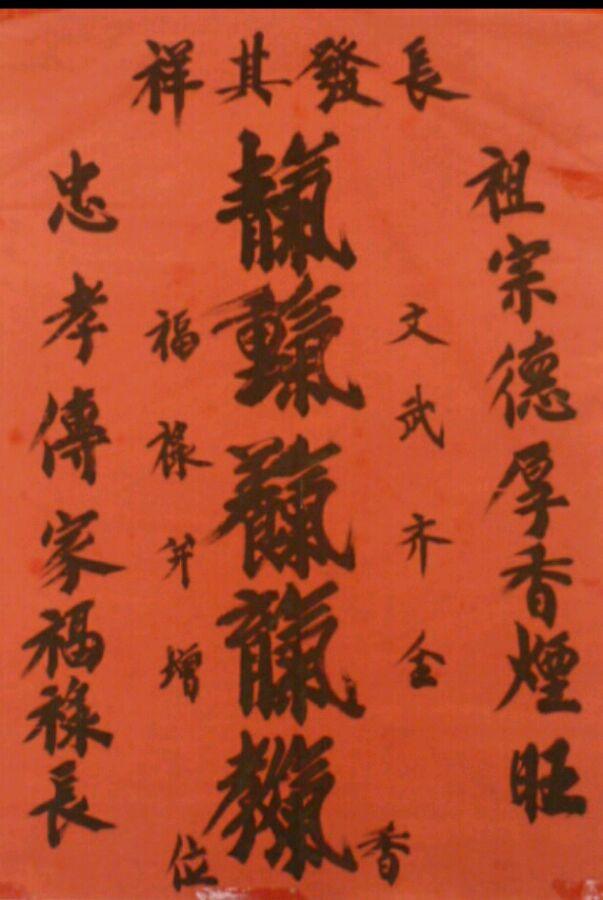 長發其祥
祖宗德厚香煙旺
文武全
靝
香
位
福祿并增
忠孝傳家福祿長